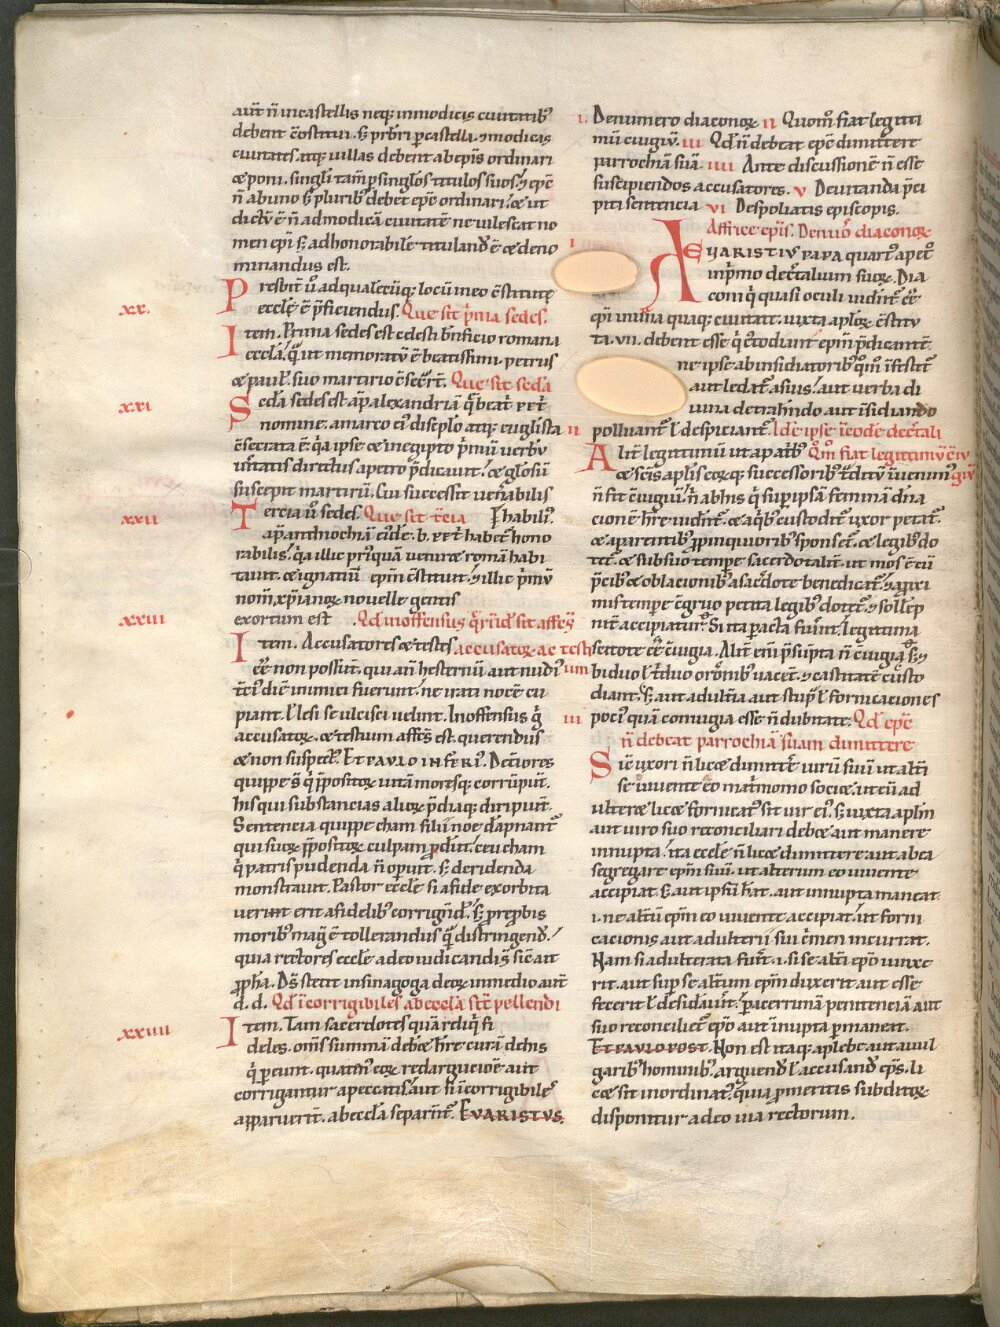 aut̄ n̄ in castellis neq; inmodicis ciuitatib᷒
debent c̄stitui. s; p̄rb̄ri p castella, ⁊ modicas
ciuitates atq; uillas debent ab ep̄is ordinari
& poni. singl̄i tam̄ p singlos titulos suos. ⁊ ep̄c
n̄ ab uno s; plurib᷒ debet ep̄c ordinari. & ut
dictū ē n̄ ad modicā ciuitatē ne uilescat no
men ep̄i s; ad honorabilē tituland᷒ ē & deno
minandus est.
Presbit̄ u̅ ad qualēcūq; locū in eo c̄stitutę
ecclę̄ ē p̄ficiendus. Que sit p̄ma sedes.
xx. Item. Prima sedes est celesti b̄nficio romana
eccl̄a. q̄ ut memoratū ē beatissimi petrus
& paul᷒. suo martirio c̄secr̄t. Que sit sed̄a
xxi Secd̄a sedes est ap̄ alexandriā q̄ beat᷒ pet᷒
nomine. a marco ei᷒ discipl̄o atq; euglista
c̄secrata ē. q̄a ipse & in egipto p̄mū uerbū
ū̄itatis directus a petro p̄dicauit. & glosū
suscepit martiriū. Cui successit uen̄abilis
xxii Tercia u̅ sedes. Que sit t̄cia habil᷒.
ap̄ anthiochiā eid̄. b. pet᷒ habet̄ hono
rabilis. q̄a illic pri᷒quā ueniret romā habi
tauit. & ignatiū ep̄m c̄stituit, ⁊ illic p̄mū
nom̄ xp̄ianoꝝ nouelle gentis
xxiii exortum est Qd̄ inoffensus q̄rūd᷒ sit affēs
Item. Accusatores & testes accusatoꝝ ac testi
ee̅ non possunt. qui an̄ hesternū aut nudi᷒ um
t̄ci᷒ diē inimici fuerunt. ne irati nocē cu
piant. l̄ lesi se ulcisci uelint. Inoffensus q̄
accusatoꝝ. & testium affēs est. querendus
& non suspect᷒. Et paulo inferi᷒. Det̄iores
quippe s̄ q̄ p̄positoꝝ uitā moresq; corrūpūt.
his qui substancias alioꝝ p̄diaq; diripiūt.
Sentencia quippe cham filii noe dāpnant᷒
qui suoꝝ p̄positoꝝ culpam ꝓdūt. ceu cham
q̄ patris pudenda n̄ opuit. s; deridenda
monstrauit. Pastor eccl̄e si a fide exorbita
uerint erit a fidelib᷒ corrigēd᷒. s; p reprobis
morib᷒ mag̅ ē tollerandus q̄ distringend᷒.
quia rectores eccl̄e a deo iudicandi s̄ sic̄ ait
ꝓpha. D̄s stetit in sinagoga deoꝝ in medio aut̄
d. d. Qd̄ īcorrigibiles ab eccl̄a s̄t pellendi
xxiiii Item. Tam sacerdotes quā reliq̄ fi
deles. om̄s summā deb& h̄re curā de his
q̄ pereunt. quatin᷒ eoꝝ redarguciōe aut
corrigantur a peccatis. aut si īcorrigibiles
apparuerit̄. ab eccl̄a separēt᷒. Evaristus.
i. De numero diaconoꝝ ii Quom̄ fiat legiti
mū c̄iugiū. iii Qd̄ n̄ debeat ep̄c dimittere
parrochiā suā. iiii Ante discussionē n̄ esse
suscipiendos accusatores. v Deuitanda p̄ci
piti sentencia vi De spoliatis episcopis.
Affrice ep̄is. De nūo diaconoꝝ
i Evaristus papa quart᷒ a pet᷒
in p̄mo dec̄talium suoꝝ. Dia
coni q̄ quasi oculi uidēt᷒ ee̅
ep̄i in una quaq; ciuitate. iuxta aplōꝝ c̄stitu
ta. vii. debent esse q̄ c̄todiant ep̄m p̄dicantē.
ne ipse ab insidiatorib᷒ q̄m̄ īfestet᷒
aut ledat᷒ a suis. aut uerba di
uina detrahendo aut īsidiando
polluant᷒ l̄ despiciant᷒. Idē ipse ī eodē dec̄tali
ii Alit̄ legitimū ut a patrib᷒ Qm̄ fiat legitimū c̄iu
& sc̄is aplīs eoꝝq; successorib᷒ t̄ditū īuenim᷒ giū
n̄ fit c̄iugiū. n̄ ab his q̄ sup ipsā feminā dn̄a
cionē h̄re uident᷒. & a q̄b᷒ custodit᷒ uxor petat᷒.
& a parentib᷒ ꝓpinquiorib᷒ sponset᷒. & legib᷒ do
tet᷒. & sub suo tempe sacerdotalit̄. ut mos ē cū
p̄cib᷒ & oblacionib᷒ a sac̄dote benedicat᷒. ⁊ a ꝓxi
mis tempe c̄gruo petita legib᷒ dotet᷒. ⁊ sollep̄
nit̄ accipiatur. Si ita peracta fuerint. legittima
scitote ee̅ c̄iugia. Alit̄ eni̅ p̄sūpta n̄ c̄iugia s;
biduo l̄ t̄duo oronib᷒ uacent. ⁊ castitatē custo
diant. s; aut adultia aut stupa l̄ fornicaciones
iii poci᷒ quā coniugia esse n̄ dubitate. Qd̄ ep̄c
n̄ debeat parrochiā suam dimittere
Sic̄ uxori n̄ lic& dimittere uirū suū ut alt̄i
se uiuente eo matrimonio soci&. ut cū ad
ulter& lic& fornicat᷒ sit uir ei᷒. s; iuxta aplm̄
aut uiro suo reconciliari deb& aut manere
innupta. ita eccl̄e n̄ lic& dimittere aut ab ea
segregare ep̄m suū. ut alterum eo uiuente
accipiat. s; aut ipsū h̄at. aut innupta maneat.
.i. ne altū ep̄m eo uiuente accipiat. ut forni
cacionis aut adulterii sui c̄men incurrat.
Nam si adulterata fuerit. i. si se alt̄i ep̄o iunxe
rit. aut sup se altum ep̄m duxerit aut esse
fecerit l̄ desidauit. p acerrimā penitenciā aut
suo reconciliet᷒ ep̄o aut īnupta p̄maneat.
Et paulo post. Non est itaq; a plebe aut a uul
garib᷒ hominib᷒ arguend᷒ l̄ accusand᷒ ep̄s. li
c& sit inordinat᷒. quia p meritis subditoꝝ
disponitur a deo uita rectorum.